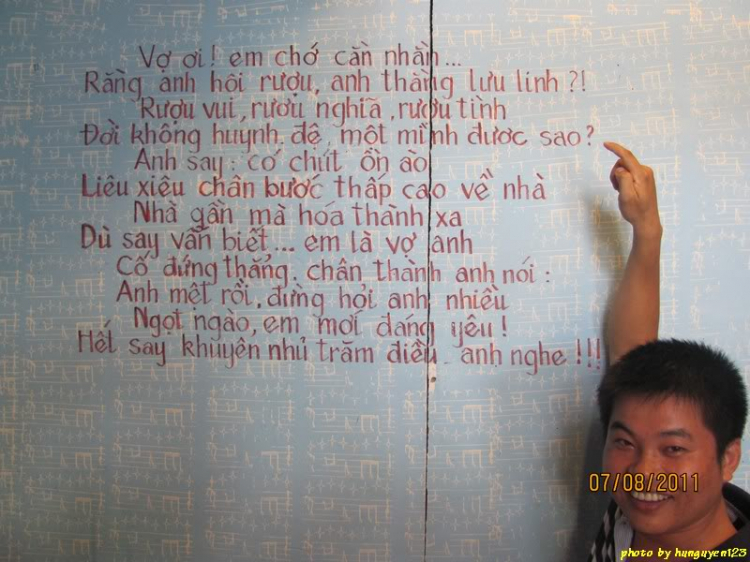 Vợ ơi! em chớ cằn nhằn...
Rằng anh hội rượu, anh thằng lưu linh?!
Rượu vui, rượu nghĩa, rượu tình
Đời không huynh, đệ, một mình được sao?
Anh say: có chút ồn ào
Liêu xiêu chân bước thấp cao về nhà
Nhà gần mà hóa thành xa
Dù say vẫn biết... em là vợ anh
Cố đứng thẳng, chân thành anh nói:
Anh mệt rồi, đừng hỏi anh nhiều
Ngọt ngào, em mới đáng yêu!
Hết say khuyên nhủ trăm điều anh nghe!!!
07/08/2011
photo by hunguyen123